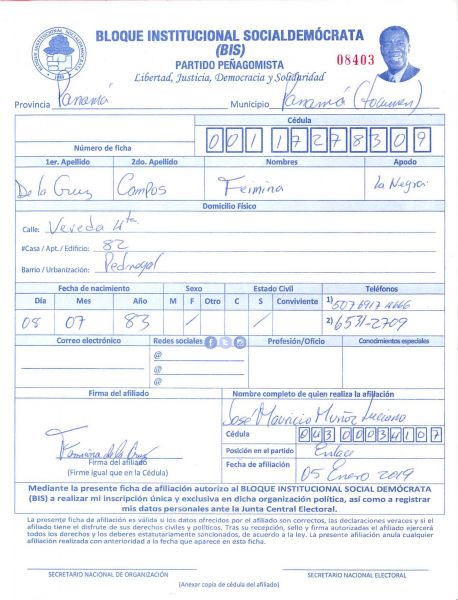 BLOQUE INSTITUCIONAL SOCIALDEMÓCRATA
(BIS)
PARTIDO PEÑAGOMISTA
Libertad, Justicia, Democracia y Solidaridad
08403
Provincia Panamá Municipio Panamá (Tocumen)
Cédula
Número de ficha 001 1727830 9
1er. Apellido 2do. Apellido Nombres Apodo
De la Cruz Campos Feimina La Negra
Domicilio Físico
Calle: Vereda 4ta
#Casa / Apt. / Edificio: 82
Barrio / Urbanización: Pedregal
Fecha de nacimiento Sexo Estado Civil Teléfonos
Día Mes Año M F Otro C S Conviviente
08 07 83 / /
1) 507 6917
2) 6531-2709
Correo electrónico Redes sociales Profesión/Oficio Conocimientos especiales
@
@
@
Firma del afiliado Nombre completo de quien realiza la afiliación
José Mauricio Muñoz Luciano
Cédula 043 0003410 7
Posición en el partido Enlace
Fecha de afiliación 05 Enero 2019
Feimina de la Cruz
Firma del afiliado
(Firme igual que en la Cédula)
Mediante la presente ficha de afiliación autorizo al BLOQUE INSTITUCIONAL SOCIAL DEMÓCRATA
(BIS) a realizar mi inscripción única y exclusiva en dicha organización política, así como a registrar
mis datos personales ante la Junta Central Electoral.
La presente ficha de afiliación es válida si los datos ofrecidos por el afiliado son correctos, las declaraciones veraces y si el
afiliado tiene el disfrute de sus derechos civiles y políticos. Tras su recepción, sello y firma autorizados el afiliado ejercerá
todos los derechos y los deberes estatutariamente sancionados, de acuerdo a la ley. La presente afiliación anula cualquier
afiliación realizada con anterioridad a la fecha que aparece en esta ficha.
SECRETARIO NACIONAL DE ORGANIZACIÓN SECRETARIO NACIONAL ELECTORAL
(Anexar copia de cédula del afiliado)